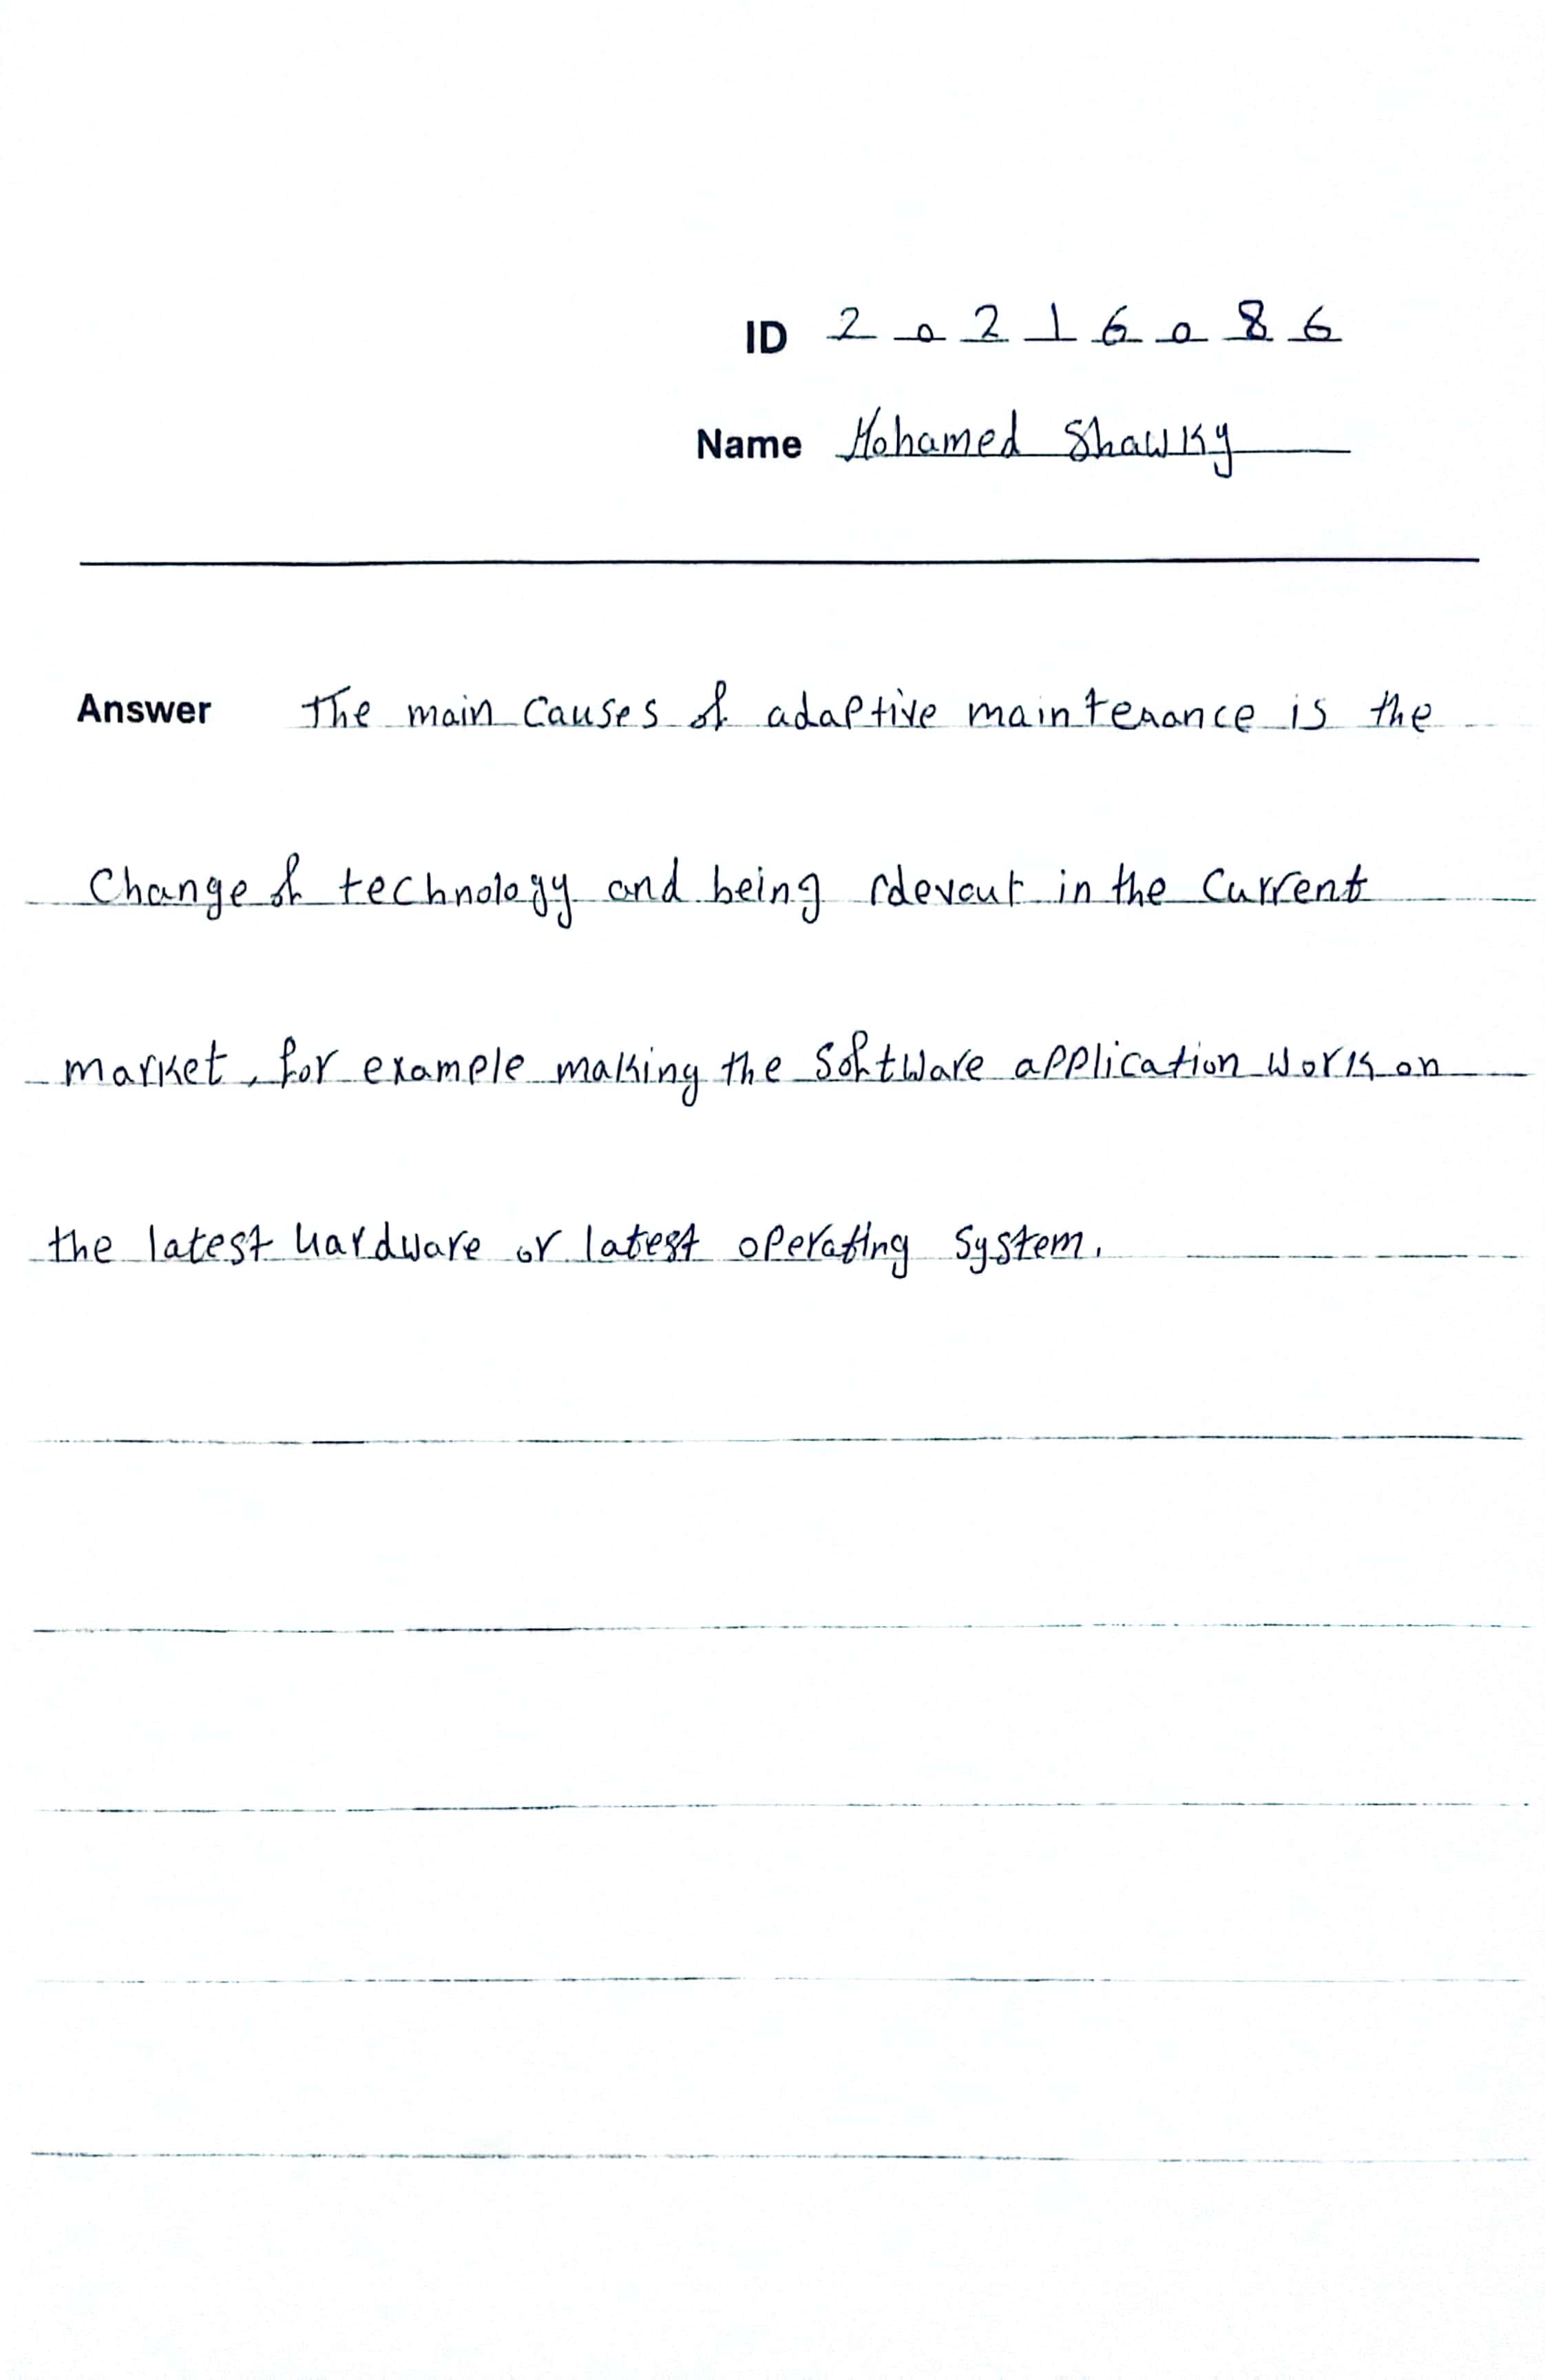 ID 20216086
Name Mohamed Shawky
Answer The main causes of adaptive maintenance is the
Change of technology and being relevant in the current
market, for example making the software application work on
the latest hardware or latest operating system.